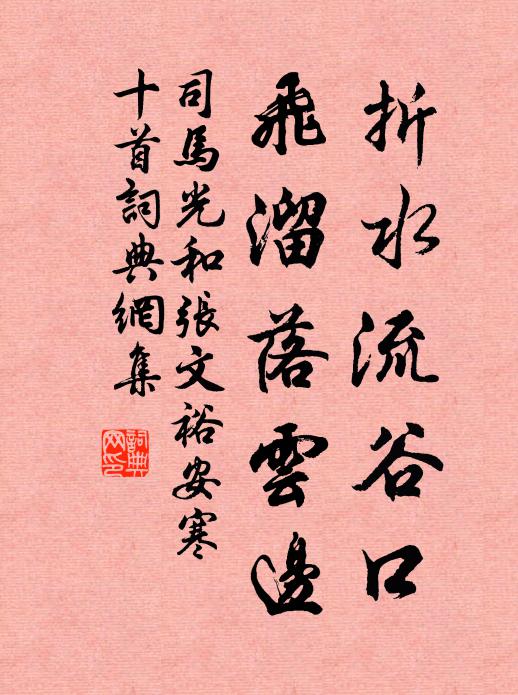 折水流谷口
飛溜落雲邊
司馬光和張文裕安寒
十首詞典網集
詞典网印